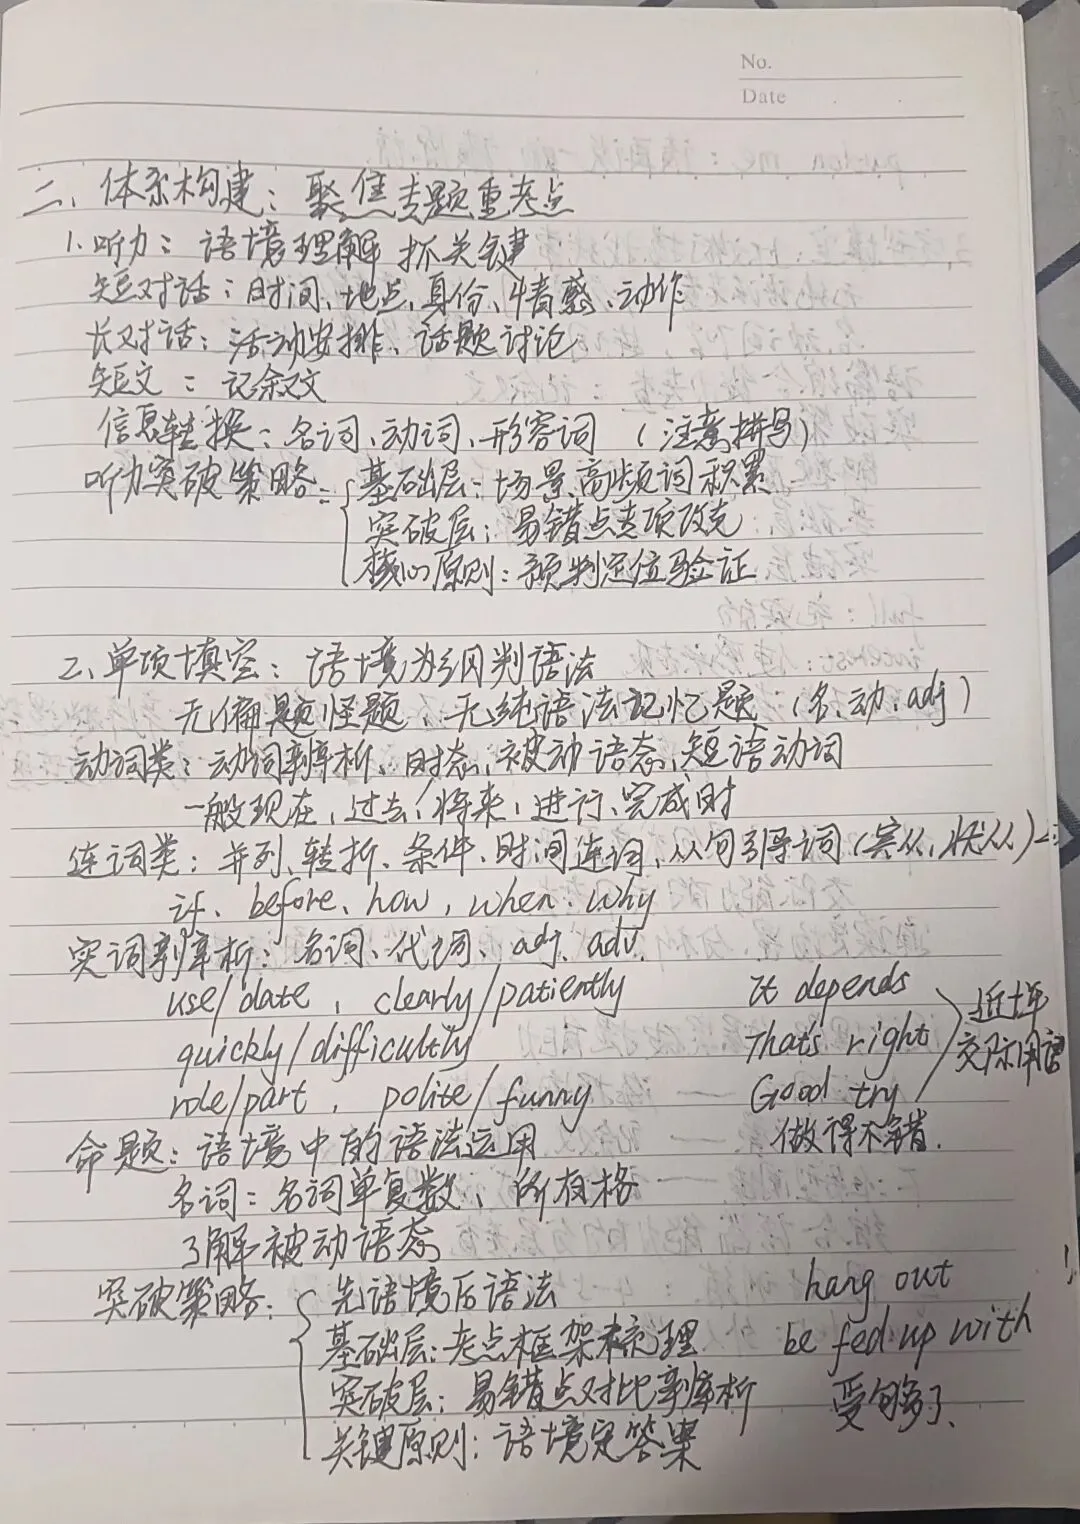 No.
Date
二、体系构建：聚焦专题重考点
1.听力：语境理解抓关键
短对话：时间、地点、身份、情感、动作
长对话：活动安排、话题讨论
短文：记叙文
信息转换：名词、动词、形容词（注意拼写）
听力突破策略：基础层：场景高频词积累
突破层：易错点专项攻克
核心原则：预判定位验证
2、单项填空：语境为纲判语法
无偏题怪题、无纯语法记忆题（名、动、adj）
动词类：动词辨析、时态、被动语态、短语动词
一般现在，过去，将来，进行、完成时
连词类：并列、转折、条件、时间连词、从句引导词（宾从，状从）
if、before、how，when．why
实词辨析：名词、代词、adj、adv.
use/date，clearly/patiently It depends
quickly/difficultly That's right 近十年
role/part，polite/funny Good try 交际用语
命题：语境中的语法运用 做得不错．
名词：名词单复数、所有格
了解被动语态
突破策略：先语境后语法 hang out
基础层：考点框架梳理 be fed up with
突破层：易错点对比辨析 受够了、
关键原则：语境定答案